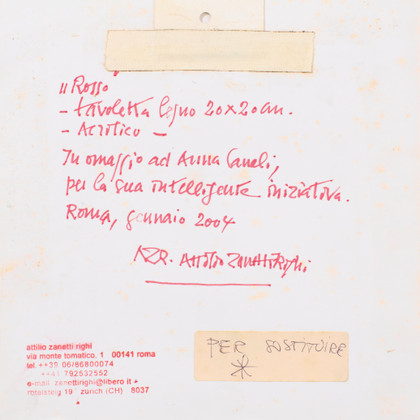 "Rosso"
- tavoletta legno 20x20cm.
- Acrilico -
In omaggio ad Anna Caneli,
per la sua intelligente iniziativa.
Roma, gennaio 2004
AZR. Attilio Zanetti Righi
PER SOSTITUIRE
*
attilio zanetti righi
via monte tomatico, 1 00141 roma
tel. ++39 06/86800074
++41 792532552
e-mail zanettirighi@libero.it
19 zurich (CH) 8037